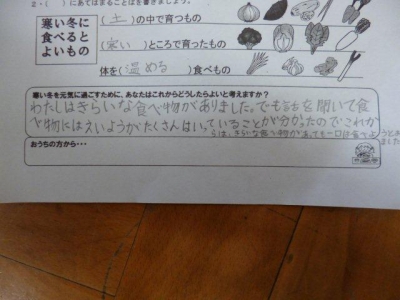 2.( )にあてはまることばを書きましょう。
寒い冬に
食べると
よいもの
(土)の中で育つもの
(寒い)ところで育ったもの
体を(温める)食べもの
寒い冬を元気に過ごすために、あなたはこれからどうしたらよいと考えますか?
わたしはきらいな食べ物がありました。でも話を聞いて食
べ物にはえいようがたくさんはいっていることが分かったのでこれか
らは、きらいな食べ物があっても一口は食べようと
ました
おうちの方から・・・